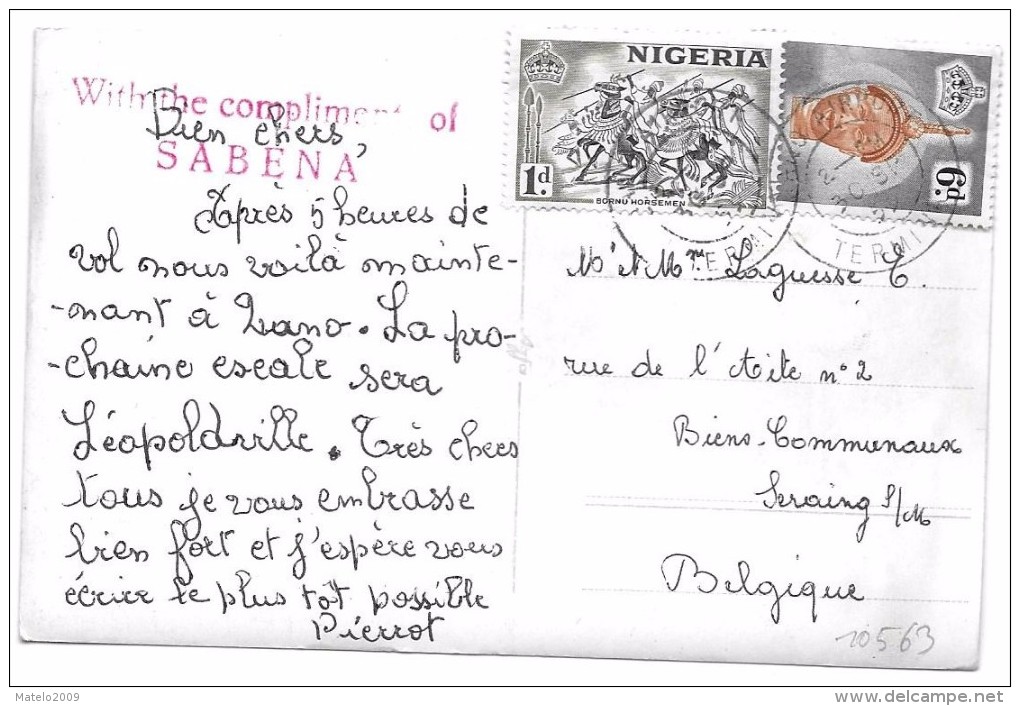 With the compliment of
SABENA
Bien chers,
Après 5 heures de
vol nous voilà mainte-
-nant à Kano. La pro-
-chaine escale sera
Léopoldville. Très chers
tous je vous embrasse
bien fort et j'espère vous
écrire le plus tôt possible
Pierrot
NIGERIA
1d.
BORNU HORSEMEN
6d.
TERMI
TERMI
Mr et Mme Laguesse E.
rue de l' n° 2
Biens-Communaux
Seraing S/M
Belgique
20563
Matelo2009
www.delcampe.net